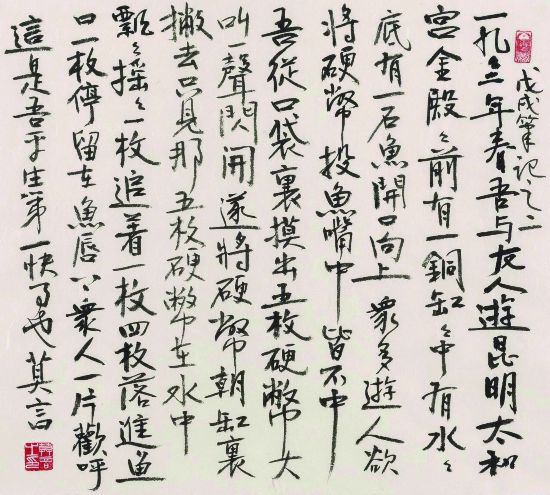 戊戌筆记之二
一九三年春吾与友人遊昆明太和
宫金殿〻前有一銅缸〻中有水〻
底有一石魚開口向上衆多遊人欲
將硬幣投魚嘴中皆不中
吾從口袋裏摸出五枚硬幣大
叫一聲閃開遂將硬幣朝缸裏
撇去只見那五枚硬幣在水中
飄〻摇〻一枚追着一枚四枚落進魚
口一枚停留在魚唇上衆人一片歡呼
這是吾平生第一快事也莫言